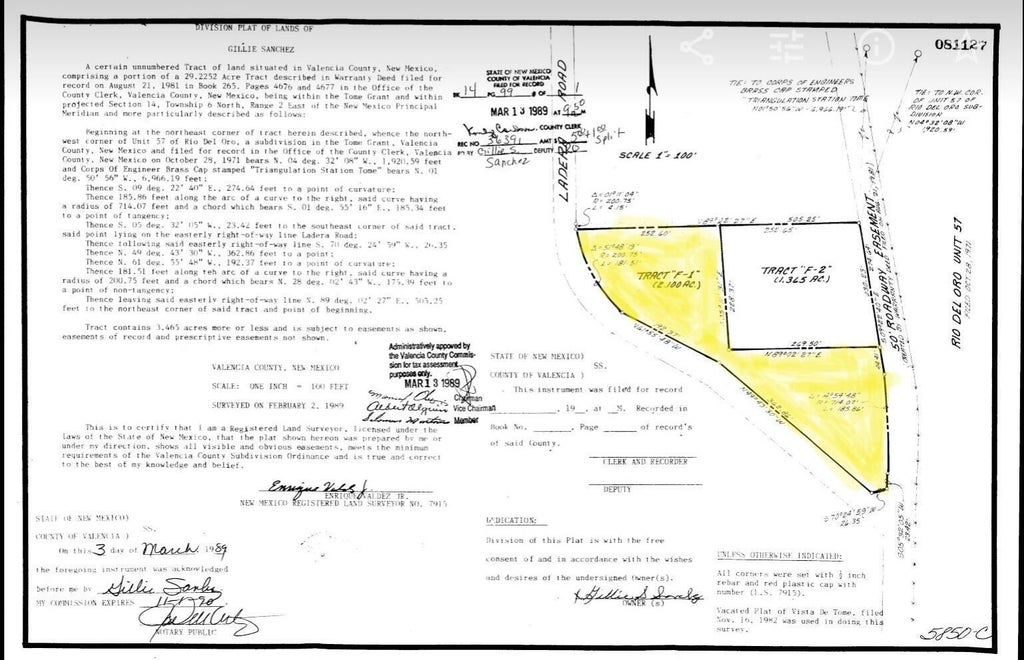 DIVISION PLAT OF LANDS OF
GILLIE SANCHEZ
A certain unnumbered Tract of land situated in Valencia County, New Mexico,
comprising a portion of a 29.2252 Acre Tract described in Warranty Deed filed for
record on August 21, 1981 in Book 265, Pages 4676 and 4677 in the Office of the
County Clerk, Valencia County, New Mexico, being within the Tome Grant and within
projected Section 14, Township 6 North, Range 2 East of the New Mexico Principal
Meridian and more particularly described as follows:
Beginning at the northeast corner of tract herein described, whence the north-
west corner of Unit 57 of Rio Del Oro, a subdivision in the Tome Grant, Valencia
County, New Mexico and filed for record in the Office of the County Clerk, Valencia
County, New Mexico on October 28, 1971 bears N. 04 deg. 32' 08" W., 1,920.59 feet
and Corps Of Engineer Brass Cap stamped "Triangulation Station Tome" bears N. 01
deg. 50' 56" W., 6,966.19 feet;
Thence S. 09 deg. 22' 40" E., 274.64 feet to a point of curvature;
Thence 185.86 feet along the arc of a curve to the right, said curve having
a radius of 714.07 feet and a chord which bears S. 01 deg. 55' 16" E., 185.34 feet
to a point of tangency;
Thence S. 05 deg. 32' 05" W., 23.42 feet to the southeast corner of said tract,
said point lying on the easterly right-of-way line Ladera Road;
Thence following said easterly right-of-way line S. 70 deg. 24' 59" W., 26.35
Thence N. 49 deg. 43' 30" W., 362.86 feet to a point;
Thence N. 61 deg. 55' 48" W., 192.37 feet to a point of curvature;
Thence 181.51 feet along teh arc of a curve to the right, said curve having a
radius of 200.75 feet and a chord which bears N. 28 deg. 02' 43" W., 175.39 feet to
a point of non-tangency;
Thence leaving said easterly right-of-way line N. 89 deg. 02' 27" E., 505.25
feet to the northeast corner of said tract and point of beginning.
Tract contains 3.465 acres more or less and is subject to easements as shown,
easements of record and prescriptive easements not shown.
VALENCIA COUNTY, NEW MEXICO
SCALE: ONE INCH = 100 FEET
SURVEYED ON FEBRUARY 2, 1989
This is to certify that I am a Registered Land Surveyor, licensed under the
laws of the State of New Mexico, that the plat shown hereon was prepared by me or
under my direction, shows all visible and obvious easements, meets the minimum
requirements of the Valencia County Subdivision Ordinance and is true and correct
to the best of my knowledge and belief.
ENRIQUE VALDEZ JR.
NEW MEXICO REGISTERED LAND SURVEYOR NO. 7915
STATE OF NEW MEXICO)
SS.
COUNTY OF VALENCIA )
On this 3 day of March 1989
the foregoing instrument was acknowledged
before me by Gillie Sanchez
MY COMMISSION EXPIRES 11-1-90
NOTARY PUBLIC
STATE OF NEW MEXICO
COUNTY OF VALENCIA
FILED FOR RECORD
BK 14 PG 99 # OF 1
MAR 13 1989 AT 9:50
COUNTY CLERK
REC NO 36391 AMT $
Gillie S. DEPUTY
Sanchez
Split
Administratively approved by
the Valencia County Commis-
sion for tax assessment
purposes only.
MAR 13 1989
Chairman
Vice Chairman
Member
STATE OF NEW MEXICO)
SS.
COUNTY OF VALENCIA )
This instrument was filed for record
, 19 , at M. Recorded in
Book No. , Page of record's
of said County.
CLERK AND RECORDER
DEPUTY
DEDICATION:
Division of this Plat is with the free
consent of and in accordance with the wishes
and desires of the undersigned Owner(s).
Gillie S Sanchez
OWNER (s)
UNLESS OTHERWISE INDICATED:
All corners were set with ½ inch
rebar and red plastic cap with
number (L.S. 7915).
Vacated Plat of Vista De Tome, filed
Nov. 16, 1982 was used in doing this
survey.
5850-C
081127
TIE: TO CORPS OF ENGINEERS
BRASS CAP STAMPED,
"TRIANGULATION STATION TOME"
N01°50'56"W - 6,966.19'
TIE: TO N.W. COR.
OF UNIT 57 OF
RIO DEL ORO SUB-
DIVISION
N04°32'08"W
1920.59'
SCALE 1" = 100'
LADERA ROAD
R= 200.75'
L= 4.15'
N89°02'27"E 505.25'
252.60' 252.65'
Δ=51°48'13"
R=200.75'
L=181.51'
TRACT "F-1"
(2.100 AC.)
TRACT "F-2"
(1.365 AC.)
269.50'
N89°02'27"E
50' ROADWAY EASEMENT
RIO DEL ORO UNIT 57
FILED OCT. 28, 1971
Δ=14°54'48"
R=714.07'
L=185.86'
S70°24'59"W
26.35'
S05°32'05"W
23.42'